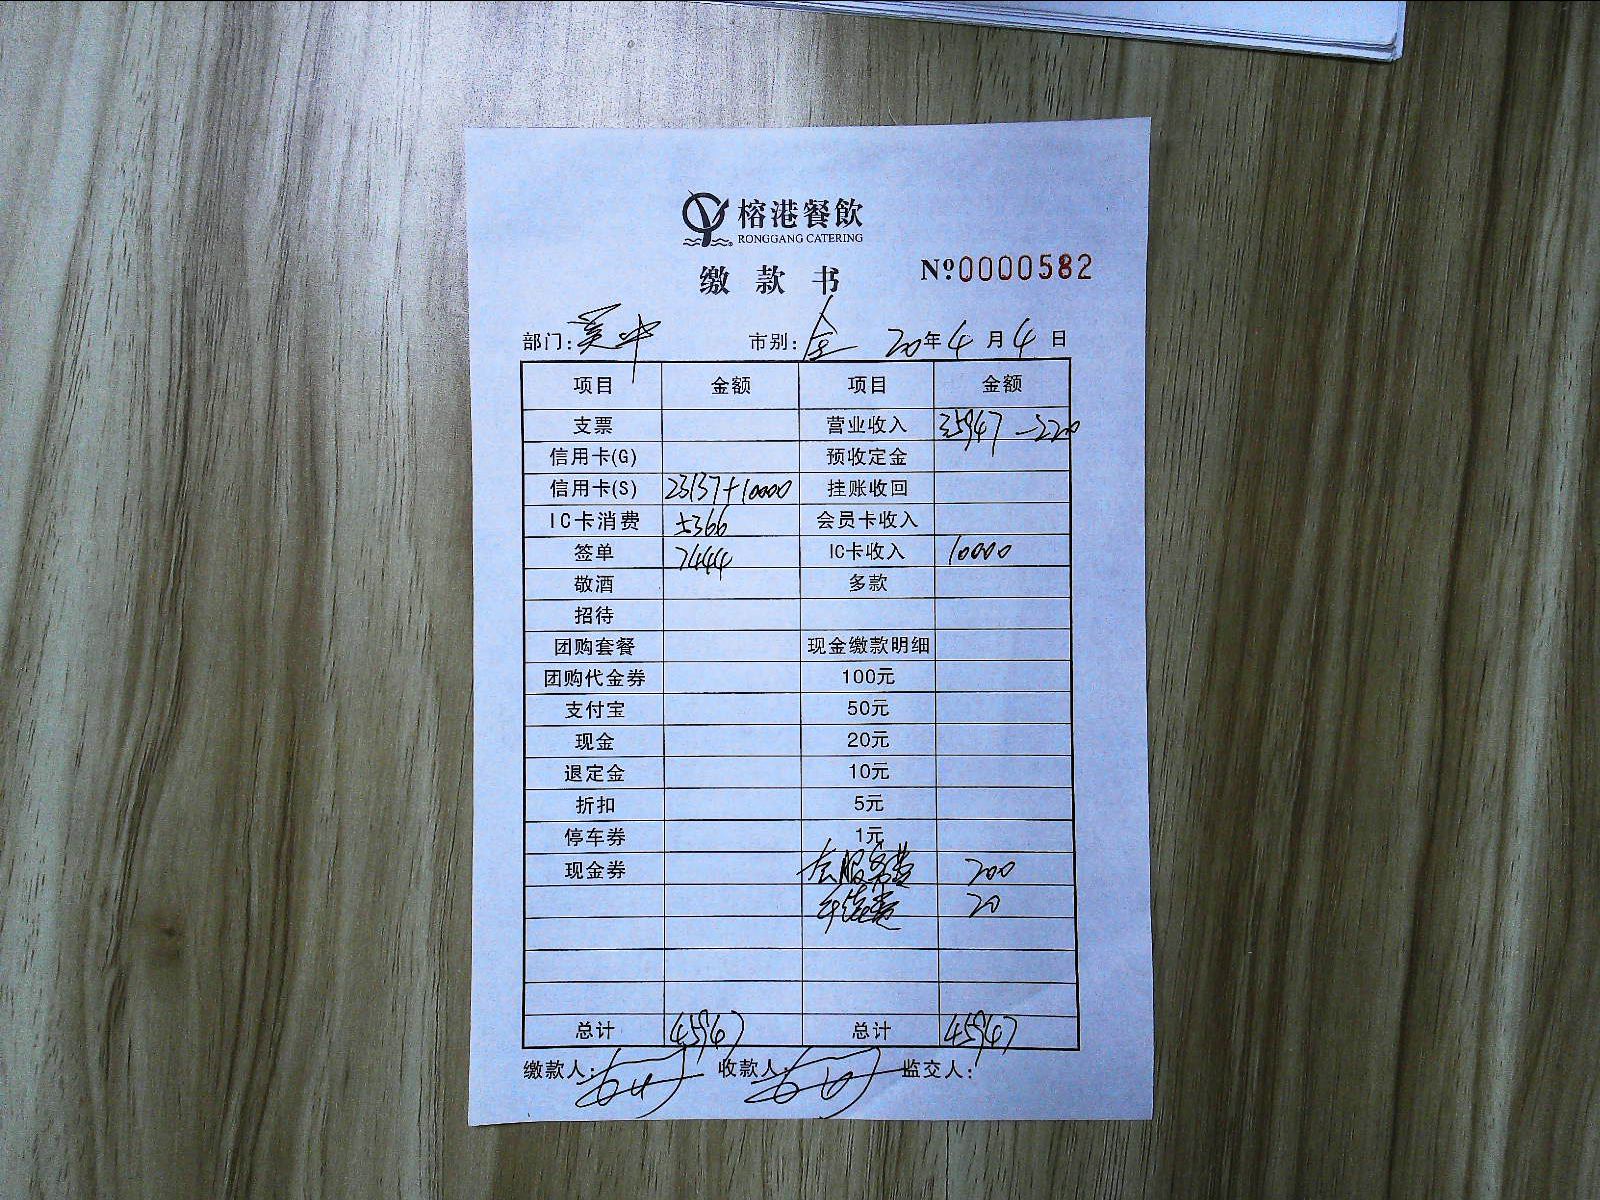 榕港餐飲
RONGGANG CATERING
缴款书 Nº0000582
部门:吴中 市别:全 20年4月4日
项目 金额 项目 金额
支票 营业收入 35947-220
信用卡(G) 预收定金
信用卡(S) 23137+10000 挂账收回
IC卡消费 5366 会员卡收入
签单 7444 IC卡收入 10000
敬酒 多款
招待
团购套餐 现金缴款明细
团购代金券 100元
支付宝 50元
现金 20元
退定金 10元
折扣 5元
停车券 1元
现金券 服务费 200
手续费 20
总计 45947 总计 45947
缴款人: 收款人: 监交人: